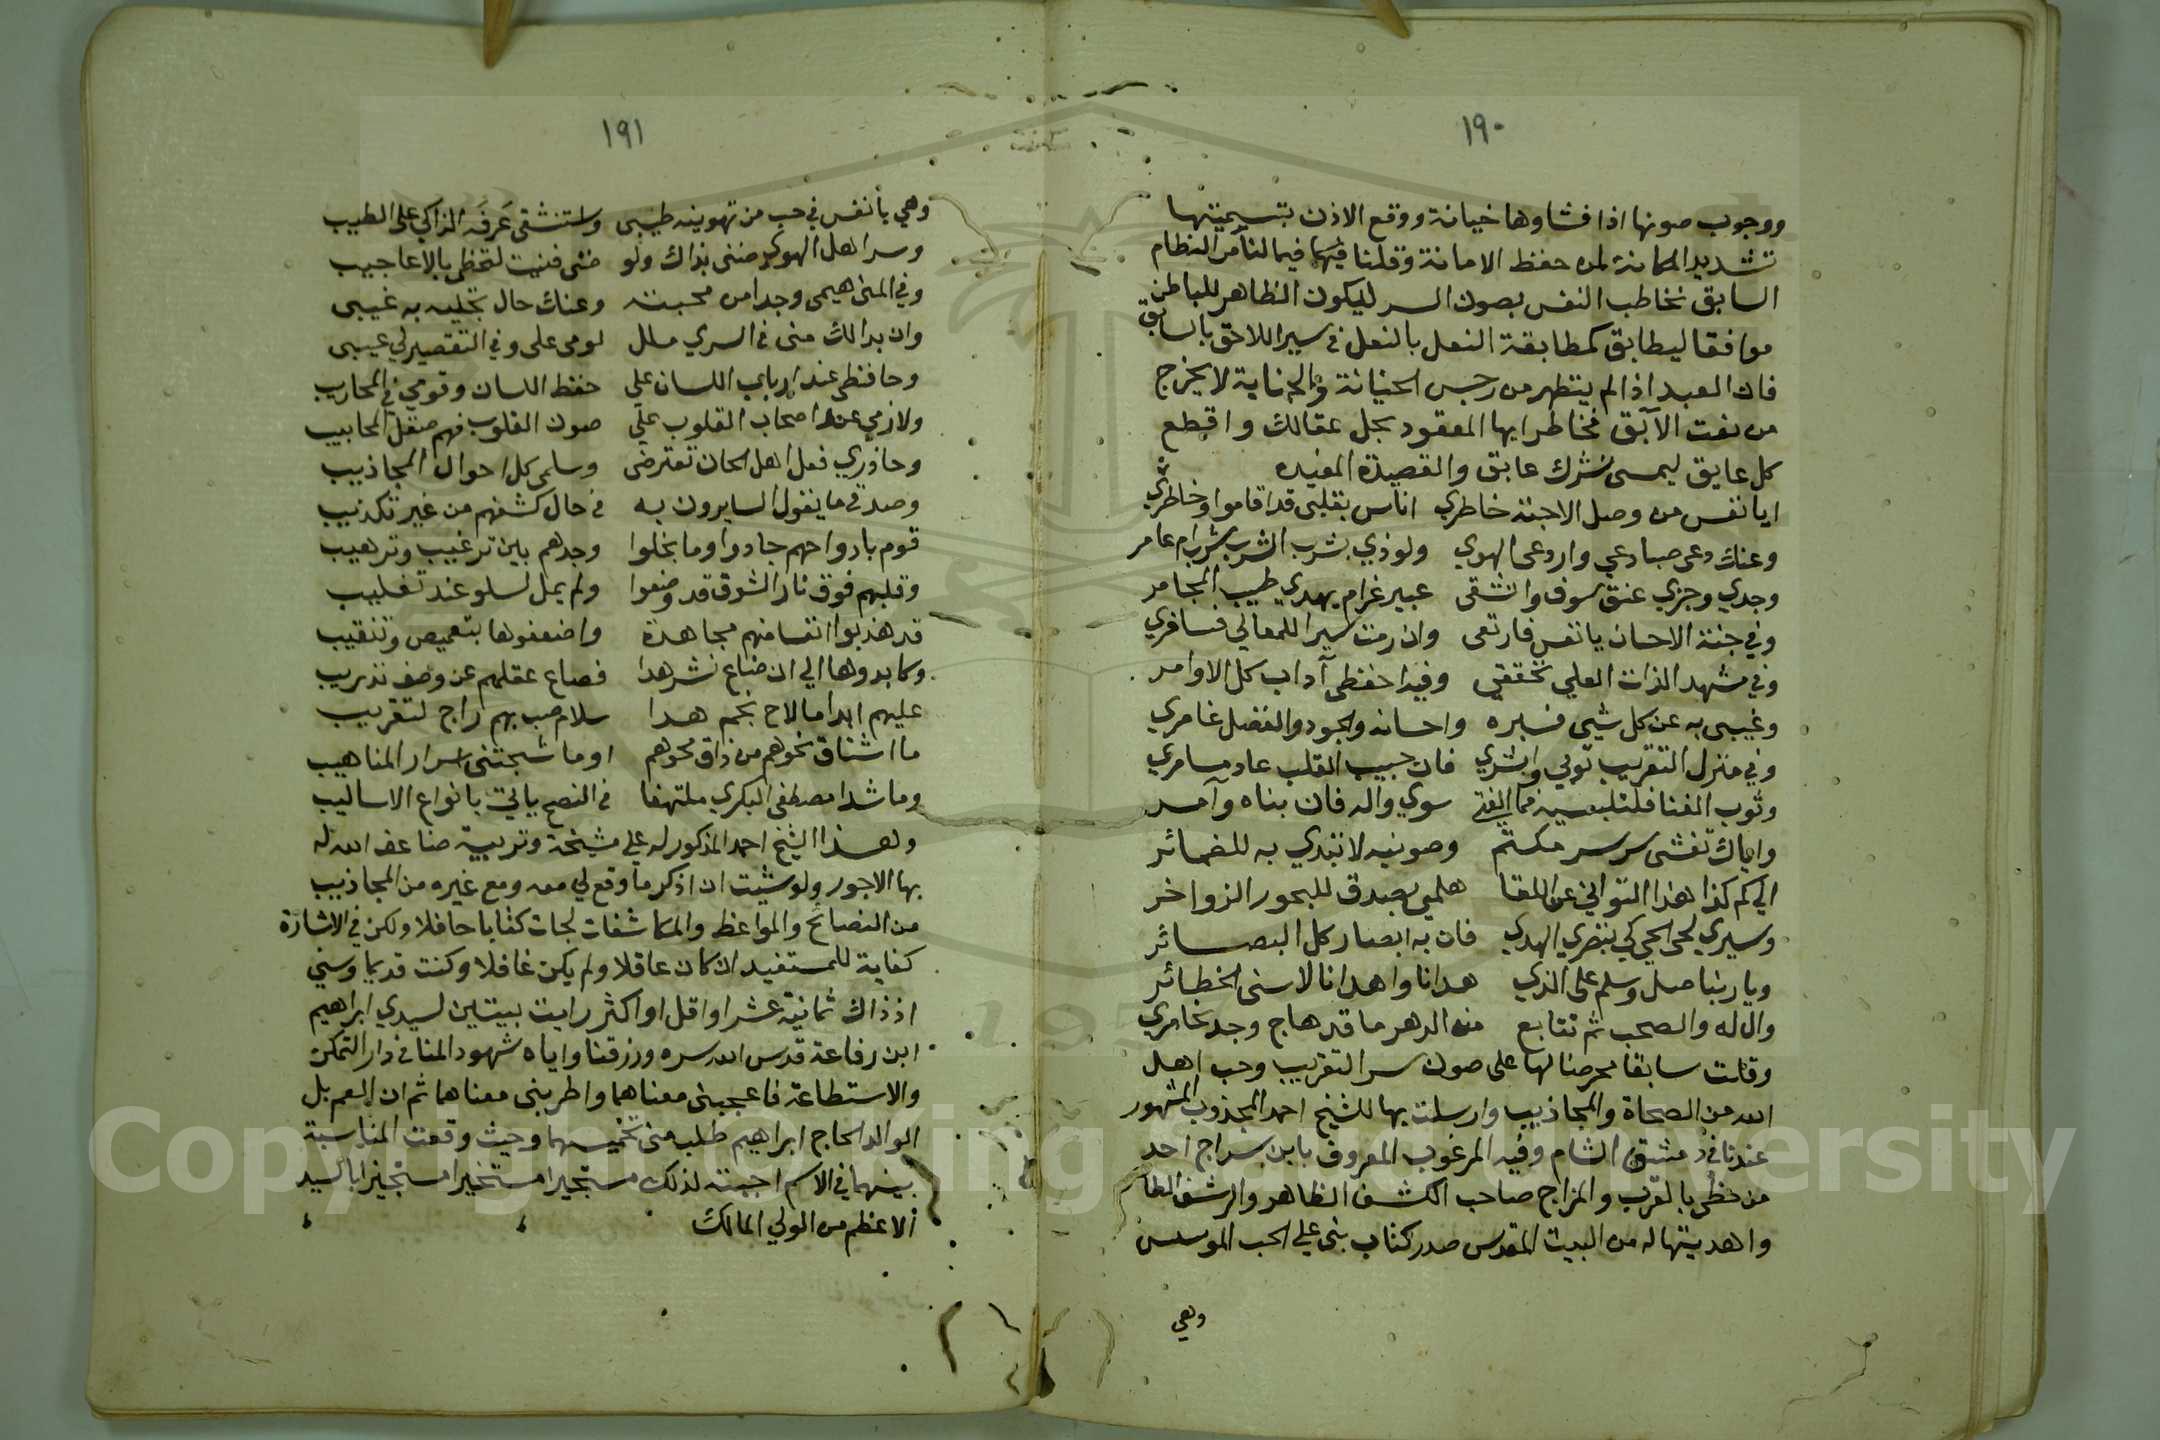 ١٩٠
ووجوب صونها اذا فشاوها خيانة ووقع الاذن بتسميتها
تشديد المكانة لمن حفظ الامانة وقلنا فيها فيما لنا من النظام
السابق نخاطب النفس بصون السر ليكون الظاهر للباطن
موافقا ليطابق كمطابقة النعل بالنعل في سير اللاحق بالسابق
فان العبد اذا لم يتطهر من رجس الخيانة والجناية لا يخرج
من نعت الآبق فخاطرا بها المعقود بحل عقالك واقطع
كل عايق ليمسي شرك عابق والقصيدة المفيده
ايا نفس من وصل الاحبة خاطري اناس بقلبي قد اقاموا وخاطري
وعنك دعي صبا دعي واردعي الهوي ولوذي بشرب الشرب شرب ام عامر
وجدي وجزي عنق سوف وانشقي عبير غرام يهدي طيب المجامر
وفي جنة الاحسان يا نفس فارتعي وان رمت سيرا للمعالي فسافري
وفي مشهد الذات العلي تحققي وفيه احفظي آداب كل الاوامر
وغيبي به عن كل شيي فسره واحسانه والجود والفضل غامري
وفي منزل التقريب توبي وابشري فان حبيب القلب عاد مسامري
وثوب الفنا فلتلبسيه فما الفتي سوي واله فان بناه وآمر
واياك تفشي سر سر مكتم وصونيه لا تبدي به للضمائر
الي كم كذا هذا التواني عن اللقا هلمي بصدق للبحور الزواخر
وسيري لحي الحي كي تنضري الهدي فان به ابصار كل البصائر
ويا ربنا صل وسلم على الذي هدانا واهدانا لاسنى الخطائر
وال له والصحب ثم تتابع مدى الدهر ما قد هاج وجد نحامري
وقلت سابقا محرضا لها على صون سر التقريب وحب اهل
الله من الصحاة والمجاذيب وارسلت بها للشيخ احمد المجذوب المشهور
عندنا في دمشق الشام وفيه المرغوب المعروف بابن سراج احد
من حظي بالقرب والمزاج صاحب الكشف الظاهر والرشف الطاهر
واهديتها له من البيت المقدس صدر كتاب بني علي الحب الموسس
وهي
١٩١
وهي يا نفس في حب من تهوينه طيبي واستنشقي عَرفَه الزاكي على الطيب
وسر اهل الهوى ضني بذاك ولو ضني فنيت لتحظي بالاعاجيب
وفي المنى هيمي وجدا من محبته وعنك حال تجليه به غيبي
وان بدا لك مني في السري ملل لومي علي وفي التقصير لي عيبي
وحافظي عند ارباب اللسان علي حفظ اللسان وقومي في المحاريب
ولازمي عند اصحاب القلوب علي صون القلوب فهم صقل المحابيب
وحاذري فعل اهل الحان تعترضي وسلمي كل احوال المجاذيب
وصدقي ما يقول السايرون به في حال كشفهم من غير تكذيب
قوم بارواحهم جادوا وما بخلوا وجدهم بين ترغيب وترهيب
وقلبهم فوق نار الشوق قد وضعوا ولم يمل لسلو عند تغليب
قد هذبوا انفسا منهم مجاهدة واضعفوها بتمحيص وتنقيب
وكابدوها الي ان ضاع نشر هدا فضاع عقلهم عن وصف تدريب
عليهم ابدا ما لاح نجم هدا سلام صب بهم راج لتقريب
ما اشتاق نحوهم من ذاق محوهم او ما شجتني اسرار المناهيب
وما شدا مصطفى البكري ملتهفا في النصح ياتي بانواع الاساليب
ولهذا الشيخ احمد المذكور له علي مشيخة وتربية ضاعف الله له
بها الاجور ولو شيت ان اذكر ما وقع لي معه ومع غيره من المجاذيب
من النصائح والمواعظ والمكاشفات لجات كتابا حافلا ولكن في الاشارة
كفاية للمستفيد ان كان عاقلا ولم يكن غافلا وكنت قديما وسني
اذ ذاك ثمانية عشر او اقل او اكثر رايت بيتين لسيدي ابراهيم
ابن رفاعة قدس الله سره ورزقنا واياه شهود المنا في دار التمكن
والاستطاعة فاعجبني معناهما واطربني مغناهما ثم ان العم بل
الوالد الحاج ابراهيم طلب مني تخميسهما وحيث وقعت المناسبة
بينهما في الاسم اجبته لذلك مستجيرا مستخيرا مستجيزا بالسيد
الاعظم من الولي المالك